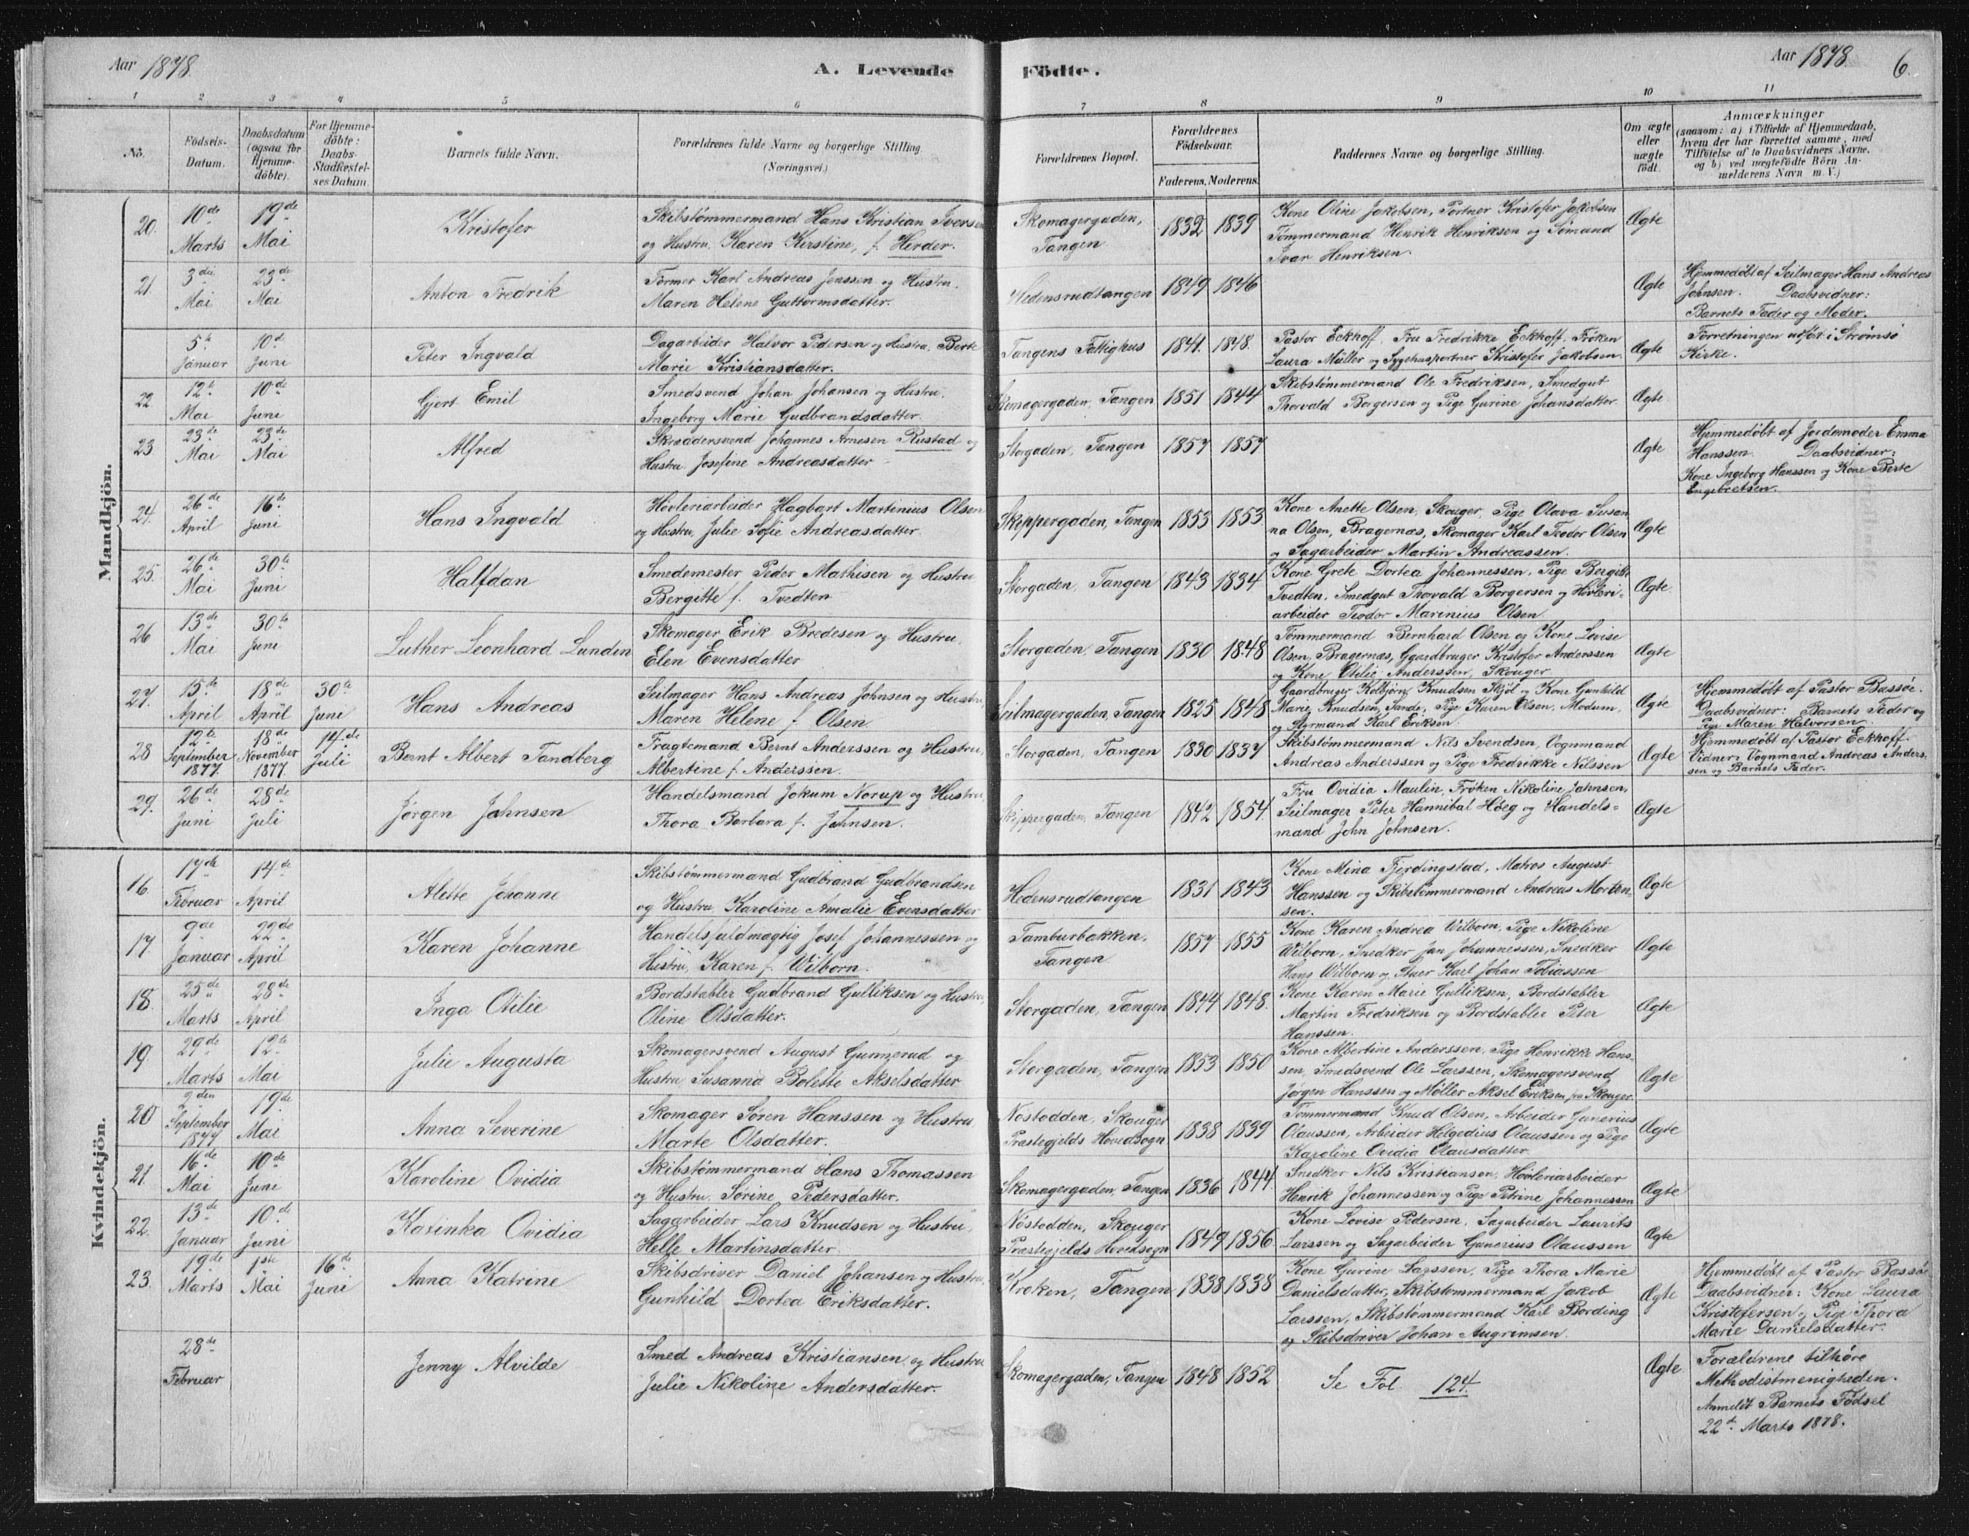 Aar 1878.
A. Levende Födte.
Aar 1878. 6.
1 2 3 4 5 6 7 8 9 10 11
No.
Födsels-Datum.
Daabsdatum (ogsaa for Hjemme-döbte).
For Hjemme-döbte: Daabs-Stadfæstel-ses Datum.
Barnets fulde Navn.
Forældrenes fulde Navne og borgerlige Stilling. (Næringsvei.)
Forældrenes Bopæl.
Forældrenes Födselsaar.
Faderens. Moderens.
Faddernes Navne og borgerlige Stilling.
Om ægte eller uægte födt.
Anmærkninger
(saasom: a) i Tilfælde af Hjemmedaab, hvem der har forrettet samme, med Tilföielse af to Daabsvidners Navne, og b) ved uægtefödte Börn An-melderens Navn m. V.)
Mandkjön.
20. 10de Marts 19de Mai Kristofer
Skibstømmermand Hans Kristian Iversen
og Hustru, Karen Kirstine, f. Herder.
Skomagergaden, Tangen 1832 1839
Kone Oline Jakobsen, Portner Kristofer Jakobsen
Tømmermand Henrik Henriksen og Sømand
Ivar Henriksen. Ægte
21. 3die Mai 23de Mai Anton Fredrik
Former Karl Andreas Jenssen og Hustru,
Maren Helene Guttormsdatter.
Hedensrudtangen 1849 1846 Ægte
Hjemmedøbt af Seilmager Hans Andreas
Johnsen. Daabsvidner:
Barnets Fader og Moder.
5te Januar 10de Juni Peter Ingvald
Dagarbeider Halvor Pedersen og Hustru, Berte
Marie Kristiansdatter.
Tangens Fattighus 1841. 1848.
Pastor Eckhoff, Fru Fredrikke Eckhoff, Frøken
Laura Müller og Sygehusportner Kristofer Jakobsen. Ægte
Forretningen udført i Strømsø
Kirke.
22 12te Mai 10de Juni Gjert Emil
Smedsvend Johan Johansen og Hustru,
Ingeborg Marie Gudbrandsdatter.
Skomagergaden, Tangen 1851 1844
Skibstømmermand Ole Fredriksen, Smedgut
Thorvald Borgersen og Pige Gurine Johansdatter Ægte
23 23de Mai 23de Mai Alfred
Skræddersvend Johannes Arnesen Rustad og
Hustru, Josefine Andreasdatter
Storgaden, Tangen 1857 1857 Ægte
Hjemmedøbt af Jordemoder Emma
Hanssen. Daabsvidner:
Kone Ingeborg Hanssen og Kone Berte
Engebretsen.
24. 26de April 16de Juni Hans Ingvald
Høvleriarbeider Hagbart Martenius Olsen
og Hustru, Julie Sofie Andreasdatter.
Skippergaden, Tangen 1853 1853
Kone Anette Olsen, Skouger, Pige Olava Susan
na Olsen, Bragernæs, Skomager Karl Teodor Olsen
og Sagarbeider Martin Andreassen. Ægte
25. 26de Mai 30te Juni Halfdan
Smedemester Peder Mathisen og Hustru
Bergitte f. Tvedten
Storgaden, Tangen 1843 1834
Kone Grete Dortea Johannessen, Pige Bergitte
Tvedten, Smedgut Thorvald Borgersen og Høvleri-
arbeider Teodor Marinius Olsen Ægte.
26 13de Mai 30te Juni Luther Leonhard Lunden
Skomager Erik Bredesen og Hustru,
Elen Evensdatter
Storgaden, Tangen 1830 1848
Tømmermand Bernhard Olsen og Kone Lovise
Olsen, Bragernæs, Gaardbruger Kristofer Anderssen
og Kone Otilie Anderssen, Skouger Ægte
27. 15de April 18de April 30te Juni Hans Andreas
Seilmager Hans Andreas Johnsen og Hustru,
Maren Helene f. Olsen
Seilmagergaden, Tangen 1825 1848
Gaardbruger Kolbjørn Knudsen Skjøl og Kone Gunhild
Marie Knudsen, Sande, Pige Karen Olsen, Modum,
og Styrmand Karl Eriksen. Ægte
Hjemmedøbt af Pastor Bassøe.
Daabsvidner: Barnets Fader og
Pige Maren Halvorsen.
28 12te September 1877. 18de November 1877. 14de Juli Bernt Albert Tandberg
Fragtemand Bernt Anderssen og Hustru,
Albertine f. Anderssen.
Storgaden, Tangen 1830 1837
Skibstømmermand Nils Svendsen, Vognmand
Andreas Anderssen og Pige Fredrikke Nilssen Ægte
Hjemmedøbt af Pastor Eckhoff.
Vidner: Vognmand Andreas Anders-
sen og Barnets Fader.
29. 26de Juni 28de Juli Jørgen Jahnsen
Handelsmand Jokum Norup og Hustru,
Thora Barbara f. Jahnsen.
Skippergaden, Tangen 1842 1854
Fru Ovidia Maulin, Frøken Nikoline Jahnsen,
Seilmager Peter Hannibal Høeg og Handels-
mand John Johnsen. Ægte
Kvindekjön.
16 17de Februar 14de April Alette Josanne
Skibstømmermand Gudbrand Gudbrandsen
og Hustru, Karoline Amalie Evensdatter
Hedensrudtangen 1831 1843
Kone Mina Fjerdingstad, Matros August
Hanssen og Skibstømmermand Andreas Morten-
sen. Ægte
17 9de Januar 22de April Karen Johanne
Handelsfuldmægtig Josef Johannessen og
Hustru, Karen f. Wilborn.
Tamburbakken, Tangen 1857 1855
Kone Karen Andrea Wilborn, Pige Nikoline
Wilborn, Snedker Jan Johannessen, Snedker
Hans Wilborn og Stuer Karl Johan Tobiassen Ægte
18 25de Marts 28de April Inga Otilie
Bordstabler Gudbrand Gulliksen og Hustru,
Oline Olsdatter.
Storgaden, Tangen 1844 1848.
Kone Karen Marie Gulliksen, Bordstabler
Martin Fredriksen og Bordstabler Peter
Hanssen. Ægte
19 29de Marts 12te Mai Julie Augusta
Skomagersvend August Gunnerud og
Hustru, Susanna Bolette Akselsdatter
Storgaden, Tangen 1853 1850
Kone Albertine Anderssen, Pige Henrikke Hans-
sen, Smedsvend Ole Larssen, Skomagersvend
Jørgen Hanssen og Møller Aksel Eriksen, fra Skouger. Ægte
20 2den September 1877 19de Mai Anna Severine
Skomager Søren Hanssen og Hustru,
Marte Olsdatter.
Nøstodden, Skouger Præstegjelds Hovedsogn 1838 1839
Tømmermand Knud Olsen, Arbeider Gunerius
Olaussen, Arbeider Helgedius Olaussen og Pige
Karoline Ovidia Olausdatter. Ægte
21. 16de Mai 10de Juni Karoline Ovidia
Skibstømmermand Hans Thomassen
og Hustru, Sørine Pedersdatter.
Skomagergaden, Tangen 1836 1844.
Snedker Nils Kristiansen, Høvleriarbeider
Henrik Johannessen og Pige Petrine Johannessen Ægte
22. 13de Januar 10de Juni Katinka Ovidia
Sagarbeider Lars Knudsen og Hustru,
Helle Martinsdatter.
Nøstodden, Skouger Præstegjelds Hovedsogn 1849 1856
Kone Lovise Pedersen, Sagarbeider Laurits
Larssen og Sagarbeider Gunerius Olaussen Ægte
23. 19de Marts 1ste Mai 16de Juni Anna Katrine
Skibsdriver Daniel Johansen og Hustru
Gunhild Dortea Eriksdatter.
Kroken, Tangen 1838 1838
Kone Gurine Larssen, Pige Thora Marie
Danielsdatter, Skibstømmermand Jakob
Larssen, Skibstømmermand Karl Bording
og Skibsdriver Johan Augrimsen. Ægte
Hjemmedøbt af Pastor Bassøe
Daabsvidner: Kone Laura
Kristofersen og Pige Thora
Marie Danielsdatter.
28de Februar Jenny Alvilde
Smed Andreas Kristiansen og Hustru
Julie Nikoline Andersdatter.
Skomagergaden, Tangen 1848 1852
Se Fol. 124. Ægte
Forældrene tilhøre
Methodistmenigheden.
Anmeldt Barnets Fødsel
22de Marts 1878.